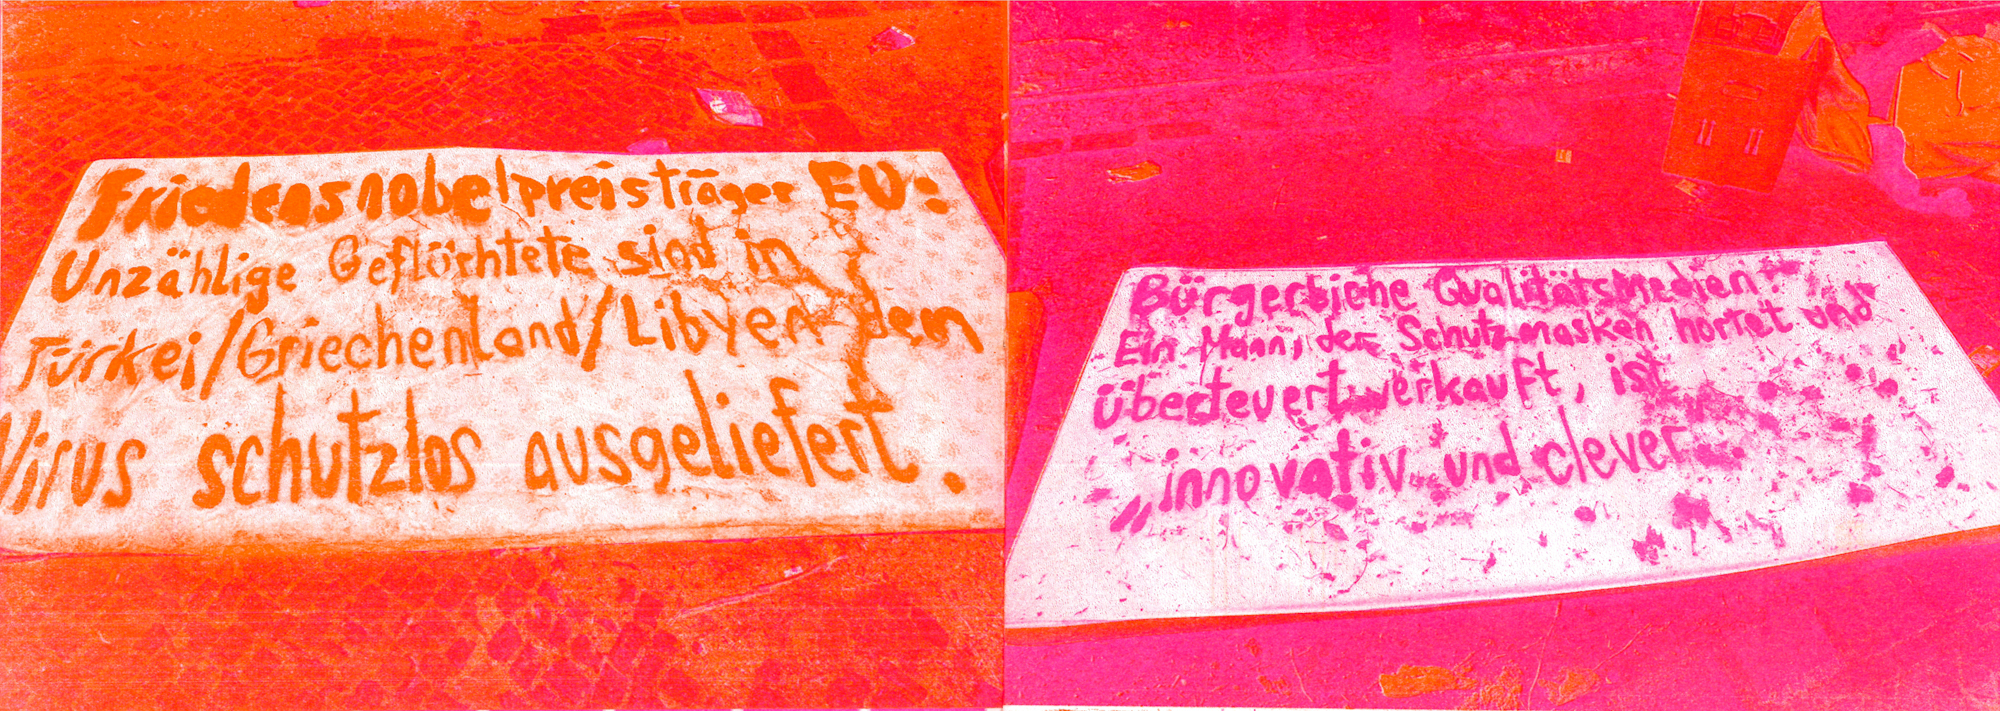 Friedensnobelpreisträger EU:
Unzählige Geflüchtete sind in
Türkei/Griechenland/Libyen dem
Virus schutzlos ausgeliefert.
Bürgerliche Qualitätsmedien:
Ein Mann, der Schutzmasken hortet und
überteuert verkauft, ist
„innovativ und clever